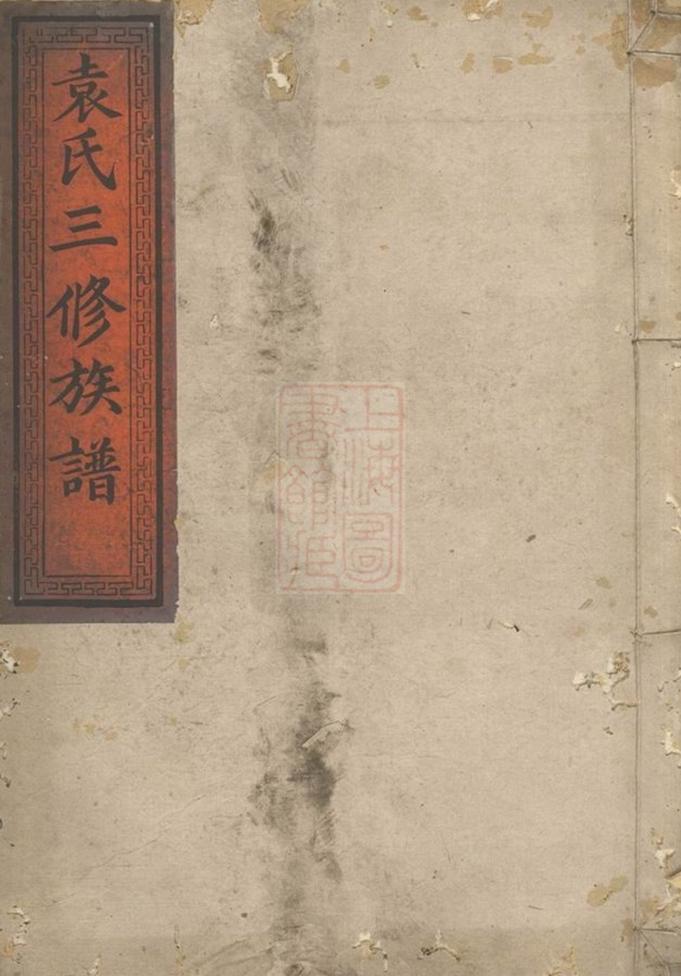 袁氏三修族譜
上海圖
書館藏